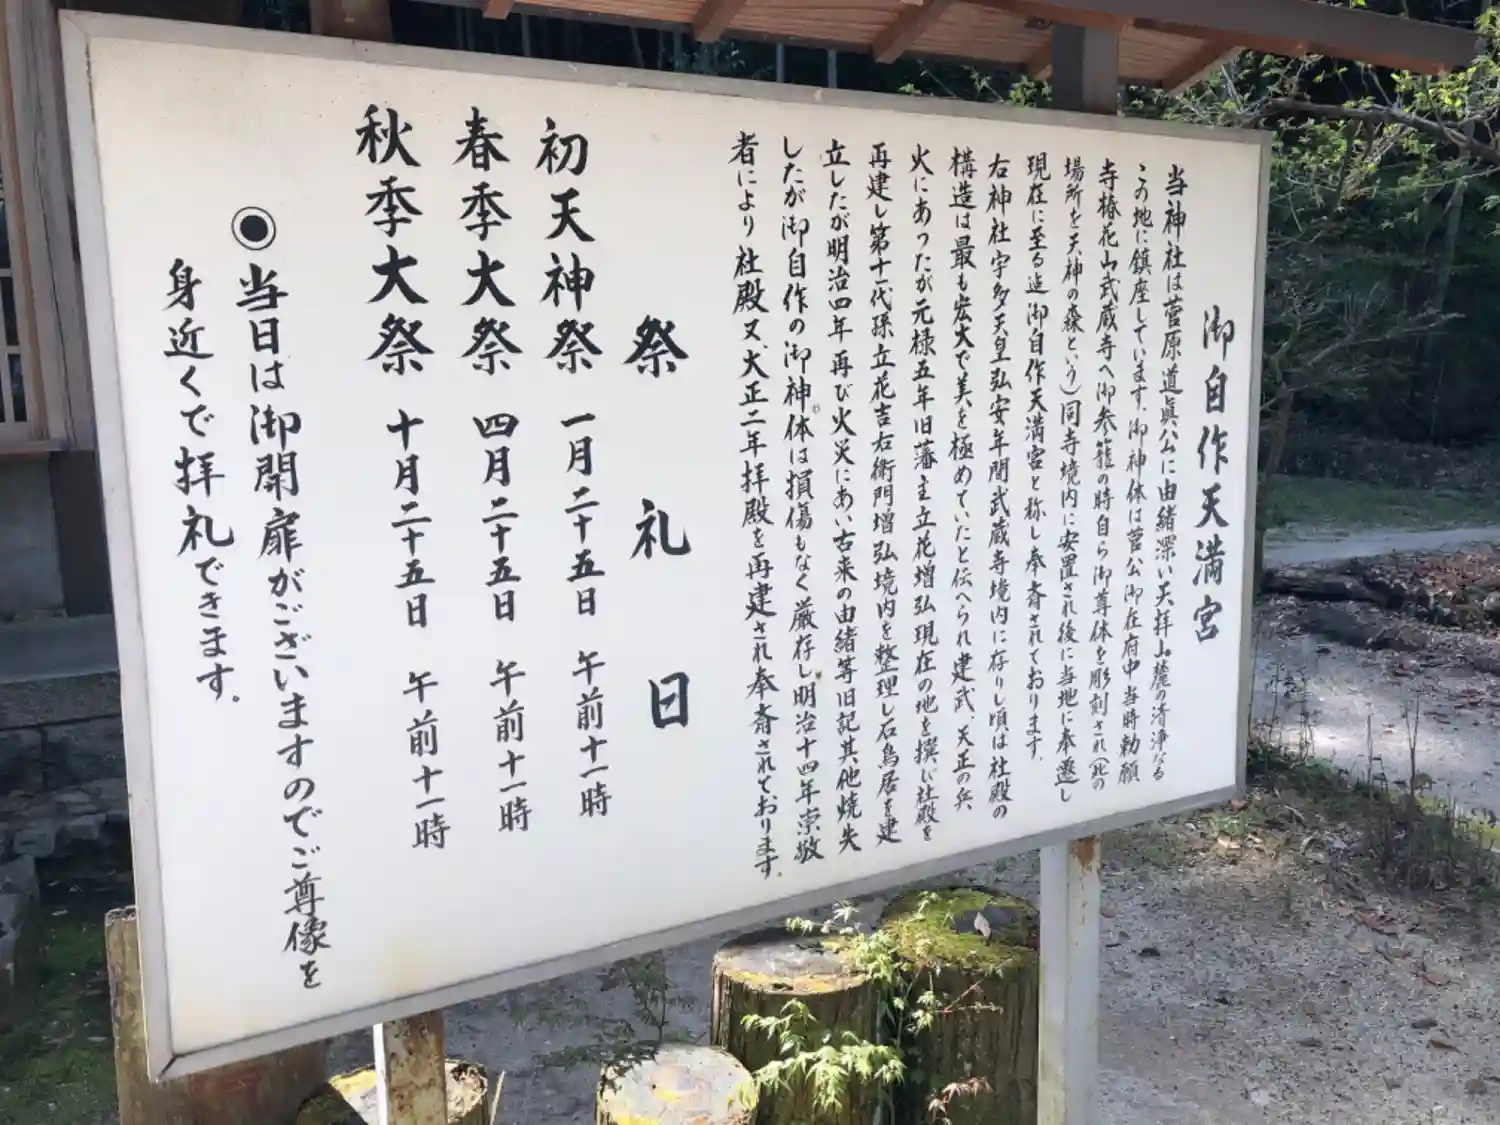 御自作天満宮
当神社は菅原道眞公に由緒深い天拝山麓の清浄なる
この地に鎮座しています。御神体は菅公御在府中当時勅願
寺椿花山武蔵寺へ御参籠の時自ら御尊体を彫刻され(此の
場所を天神の森という)同寺境内に安置され後に当地に奉遷し
現在に至る迄御自作天満宮と称し奉斎されております。
右神社宇多天皇弘安年間武蔵寺境内に存りし頃は社殿の
構造は最も宏大で美を極めていたと伝へられ建武、天正の兵
火にあったが元禄五年旧藩主立花増弘現在の地を撰じ社殿を
再建し第十一代孫立花吉右衛門増弘境内を整理し石鳥居を建
立したが明治四年再び火災にあい古来の由緒等旧記其他焼失
したが御自作の御神体は損傷もなく厳存し明治十四年崇敬
者により社殿又、大正二年拝殿を再建され奉斎されております。
祭礼日
初天神祭 一月二十五日 午前十一時
春季大祭 四月二十五日 午前十一時
秋季大祭 十月二十五日 午前十一時
◉当日は御開扉がございますのでご尊像を
身近くで拝礼できます。